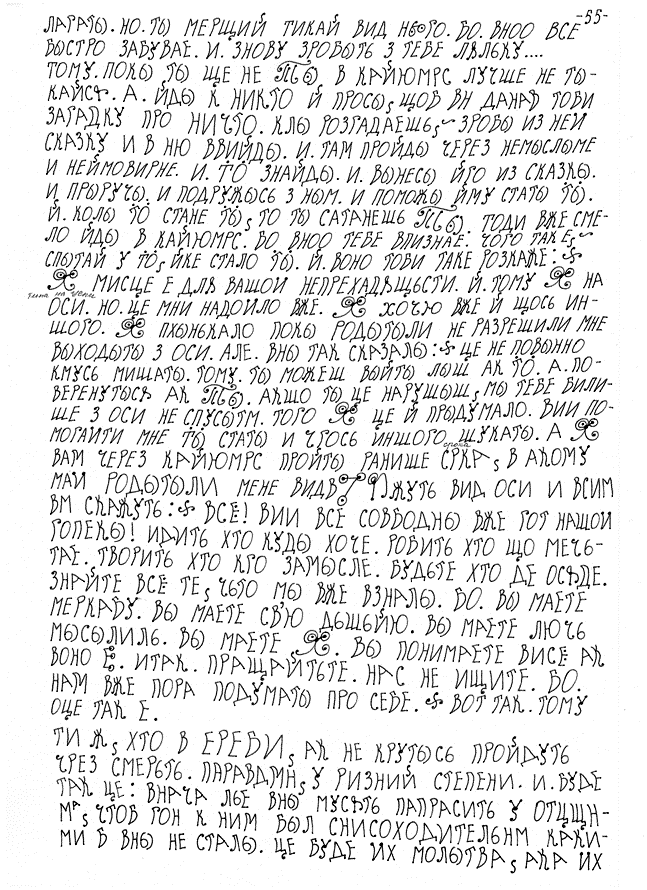 -55-
ЛАРАТЫ. НО. ТЫ МЕРЩИЙ ТИКАЙ ВИД НЬОГО. БО. ВНОО ВСЕ
БЫСТРО ЗАБУВАЕ. И. ЗНОВУ ЗРОБЫТЬ З ТЕБЕ ЛЯЛЬКУ....
ТОМУ. ПОКЫ ТЫ ЩЕ НЕ В КАЙЮМРС ЛУЧШЕ НЕ ТЫ-
КАЙСЯ. А. ЙДЫ К НИКТО Й ПРОСЫ, ЩОБ ВН ДАНАВ ТОБИ
ЗАГАДКУ ПРО НИЧТО. КЛЫ РОЗГАДАЕШЬ, ЗРОБЫ ИЗ НЕЙ
СКАЗКУ И В НЮ ВВИЙДЫ. И. ТАМ ПРОЙДЫ ЧЕРЕЗ НЕМЫСЛЫМЕ
И НЕЙМОВИРНЕ. И. ТО ЗНАЙДЫ. И. ВЫНЕСЫ ЙГО ИЗ СКАЗКЫ.
И ПРЫРУЧЫ. И ПОДРУЖЫСЬ З НЫМ. И ПОМОЖЫ ЙМУ СТАТЫ ТЫ.
Й. КОЛЫ ТО СТАНЕ ТЫ, ТО ТЫ САТАНЕШЬ ТОДИ ВЖЕ СМЕ-
ЛО ЙДЫ В КАЙЮМРС. БО ВНОО ТЕБЕ ВПИЗНАЕ. ЧОГО ТАК Е,
СПЫТАЙ У ТО, ЙКЕ СТАЛО ТЫ. Й. ВОНО ТОБИ ТАКЕ РОЗКАЖЕ:
МИСЦЕ Е ДЛЯ ВАШОЙ НЕПРЕХАДЯЩЬСТИ. Й. ТОМУ НА
ОСИ. НО. ЦЕ МНИ НАДОИЛО ВЖЕ. ХОЧЮ ВЖЕ Й ЩОСЬ ИН-
ШОГО. ПХЫНЬКАЛО ПОКЫ РОДЫТЫЛИ НЕ РАЗРЕШИЛИ МНЕ
ВЫХОДЫТЫ З ОСИ. АЛЕ. ВНЫ ТАК СКАЗАЛЫ: ЦЕ НЕ ПОВЫННО
КМУСЬ МИШАТЫ. ТОМУ. ТЫ МОЖЕШ ВЫЙТЫ ЛЫШ АК ТО. А. ПО-
ВЕРЕНУТЫСЯ АК АКШО ТЫ ЦЕ НАРУШЫШ, МЫ ТЕБЕ БИЛИ-
ШЕ З ОСИ НЕ СПУСЫТМ. ТОГО ЦЕ Й ПРЫДУМАЛО. ВИИ ПО-
МОГАИТИ МНЕ ТЫ СТАТЫ И ЧГОСЬ ИНШОГО ШУКАТЫ. А
ВАМ ЧЕРЕЗ КАЙЮМРС ПРОЙТЫ РАНИШЕ СРКА, В АКОМУ
МАЙ РОДЫТЫЛИ МЕНЕ ВИДВ ЖУТЬ ВИД ОСИ И ВСИМ
ВМ СКАЖУТЬ: ВСЕ! ВИИ ВСЕ СОВБОДНЫ ВЖЕ ГОТ НАШОЙ
ГОПЕКЫ! ИДИТЬ ХТО КУДЫ ХОЧЕ. РОБИТЬ ХТО ЩО МЕЧЬ-
ТАЕ. ТВОРИТЬ ХТО КГО ЗАМЫСЛЕ. БУДЬТЕ ХТО ДЕ ОСЯДЕ.
ЗНАЙТЕ ВСЕ ТЕ, ЧЬТО МЫ ВЖЕ ВЗНАЛЫ. БО. ВЫ МАЕТЕ
МЕРКАБУ. ВЫ МАЕТЕ СВ'Ю ДЬШЬЙЮ. ВЫ МАЕТЕ ЛЮЧЬ
МЫСЫЛИЛЬ. ВЫ МАЕТЕ ВЫ ПОНИМАЕТЕ ВИСЕ АК
ВОНО Е. ИТАК. ПРАЩАЙТЬТЕ. НАС НЕ ИЩИТЕ. БО.
НАМ ВЖЕ ПОРА ПОДУМАТЫ ПРО СЕБЕ. ВОТ ТАК. ТОМУ
ОЦЕ ТАК Е.
ТИ Ж, ХТО В ЕРЕБИ, АК НЕ КРУТЫСЬ ПРОЙДУТЬ
ЧРЕЗ СМЕРЬТЬ. ПАРАВДМН, У РИЗНИЙ СТЕПЕНИ. И. БУДЕ
ТАК ЦЕ: ВНАЧА ЛЬЕ ВНЫ МУСЯТЬ ПАПРАСИТЬ У ОТЦЩН-
МА, ЧТОБ ГОН К НИМ БЫЛ СНИСОХОДИТЕЛЬНМ КАКИ-
МИ Б ВНЫ НЕ СТАЛЫ. ЦЕ БУДЕ ИХ МОЛЫТВА, АКА ИХ